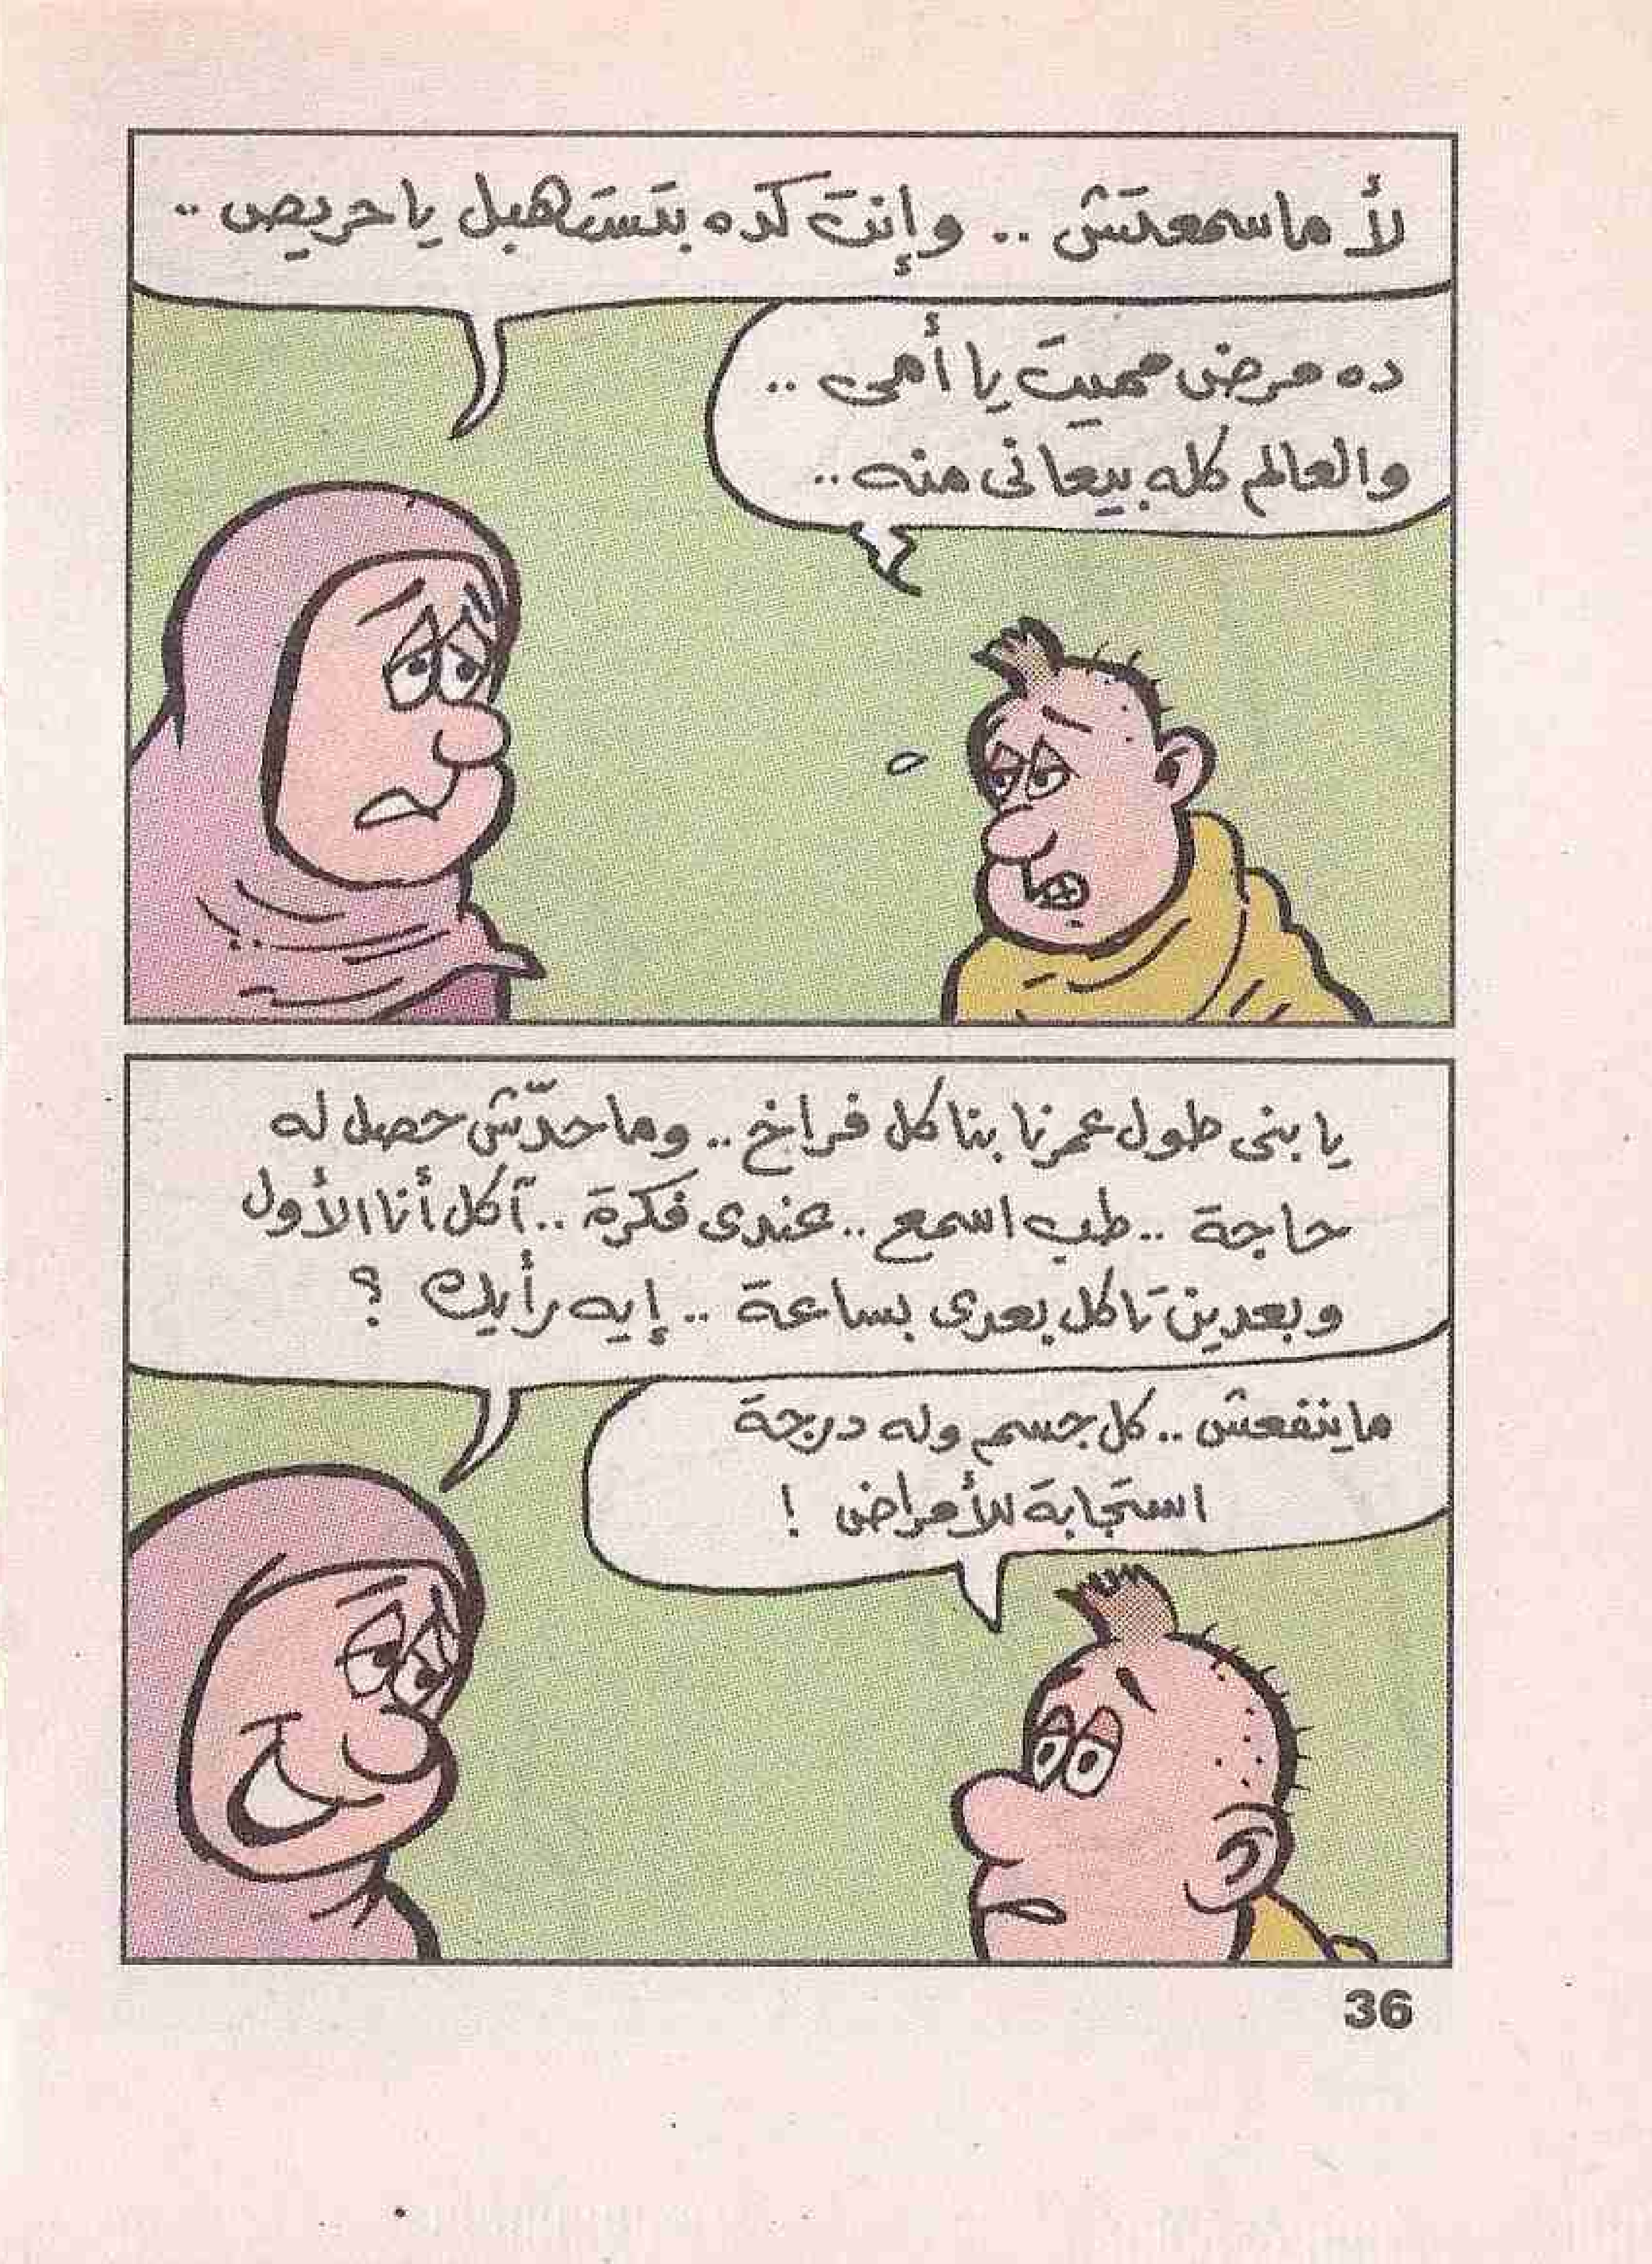 لأ ماسمعتش .. وإنت كده بتستهبل يا حريص ..
ده مرض مميت يا أمى ..
والعالم كله بيعانى منه ..
يا بنى طول عمرنا بناكل فراخ .. وما حدّش حصل له
حاجة .. طب اسمع .. عندى فكرة .. آكل أنا الأول
وبعدين تاكل بعدى بساعة .. إيه رأيك ؟
ما ينفعش .. كل جسم وله درجة
استجابة للأمراض !
36